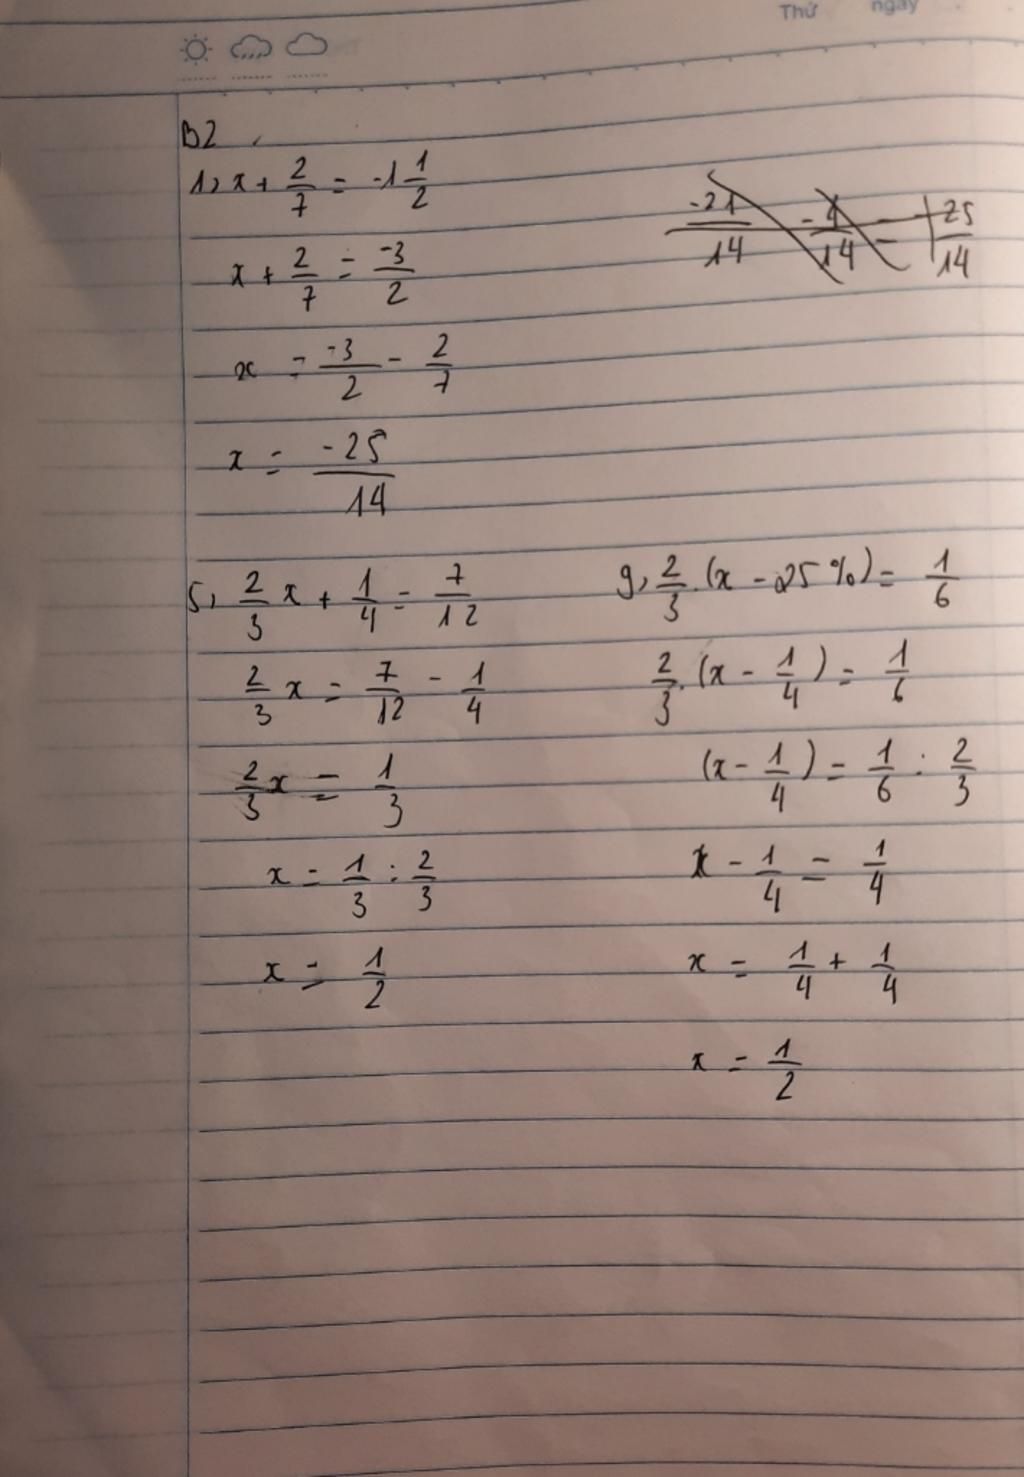 Thứ ngày
B2
1, x + 2/7 = -1 1/2
-21/14 - 4/14 = 25/14
x + 2/7 = -3/2
x = -3/2 - 2/7
x = -25/14
5, 2/3 x + 1/4 = 7/12
2/3 x = 7/12 - 1/4
2/3 x = 1/3
x = 1/3 : 2/3
x = 1/2
9, 2/3 . (x - 25%) = 1/6
2/3 . (x - 1/4) = 1/6
(x - 1/4) = 1/6 : 2/3
x - 1/4 = 1/4
x = 1/4 + 1/4
x = 1/2